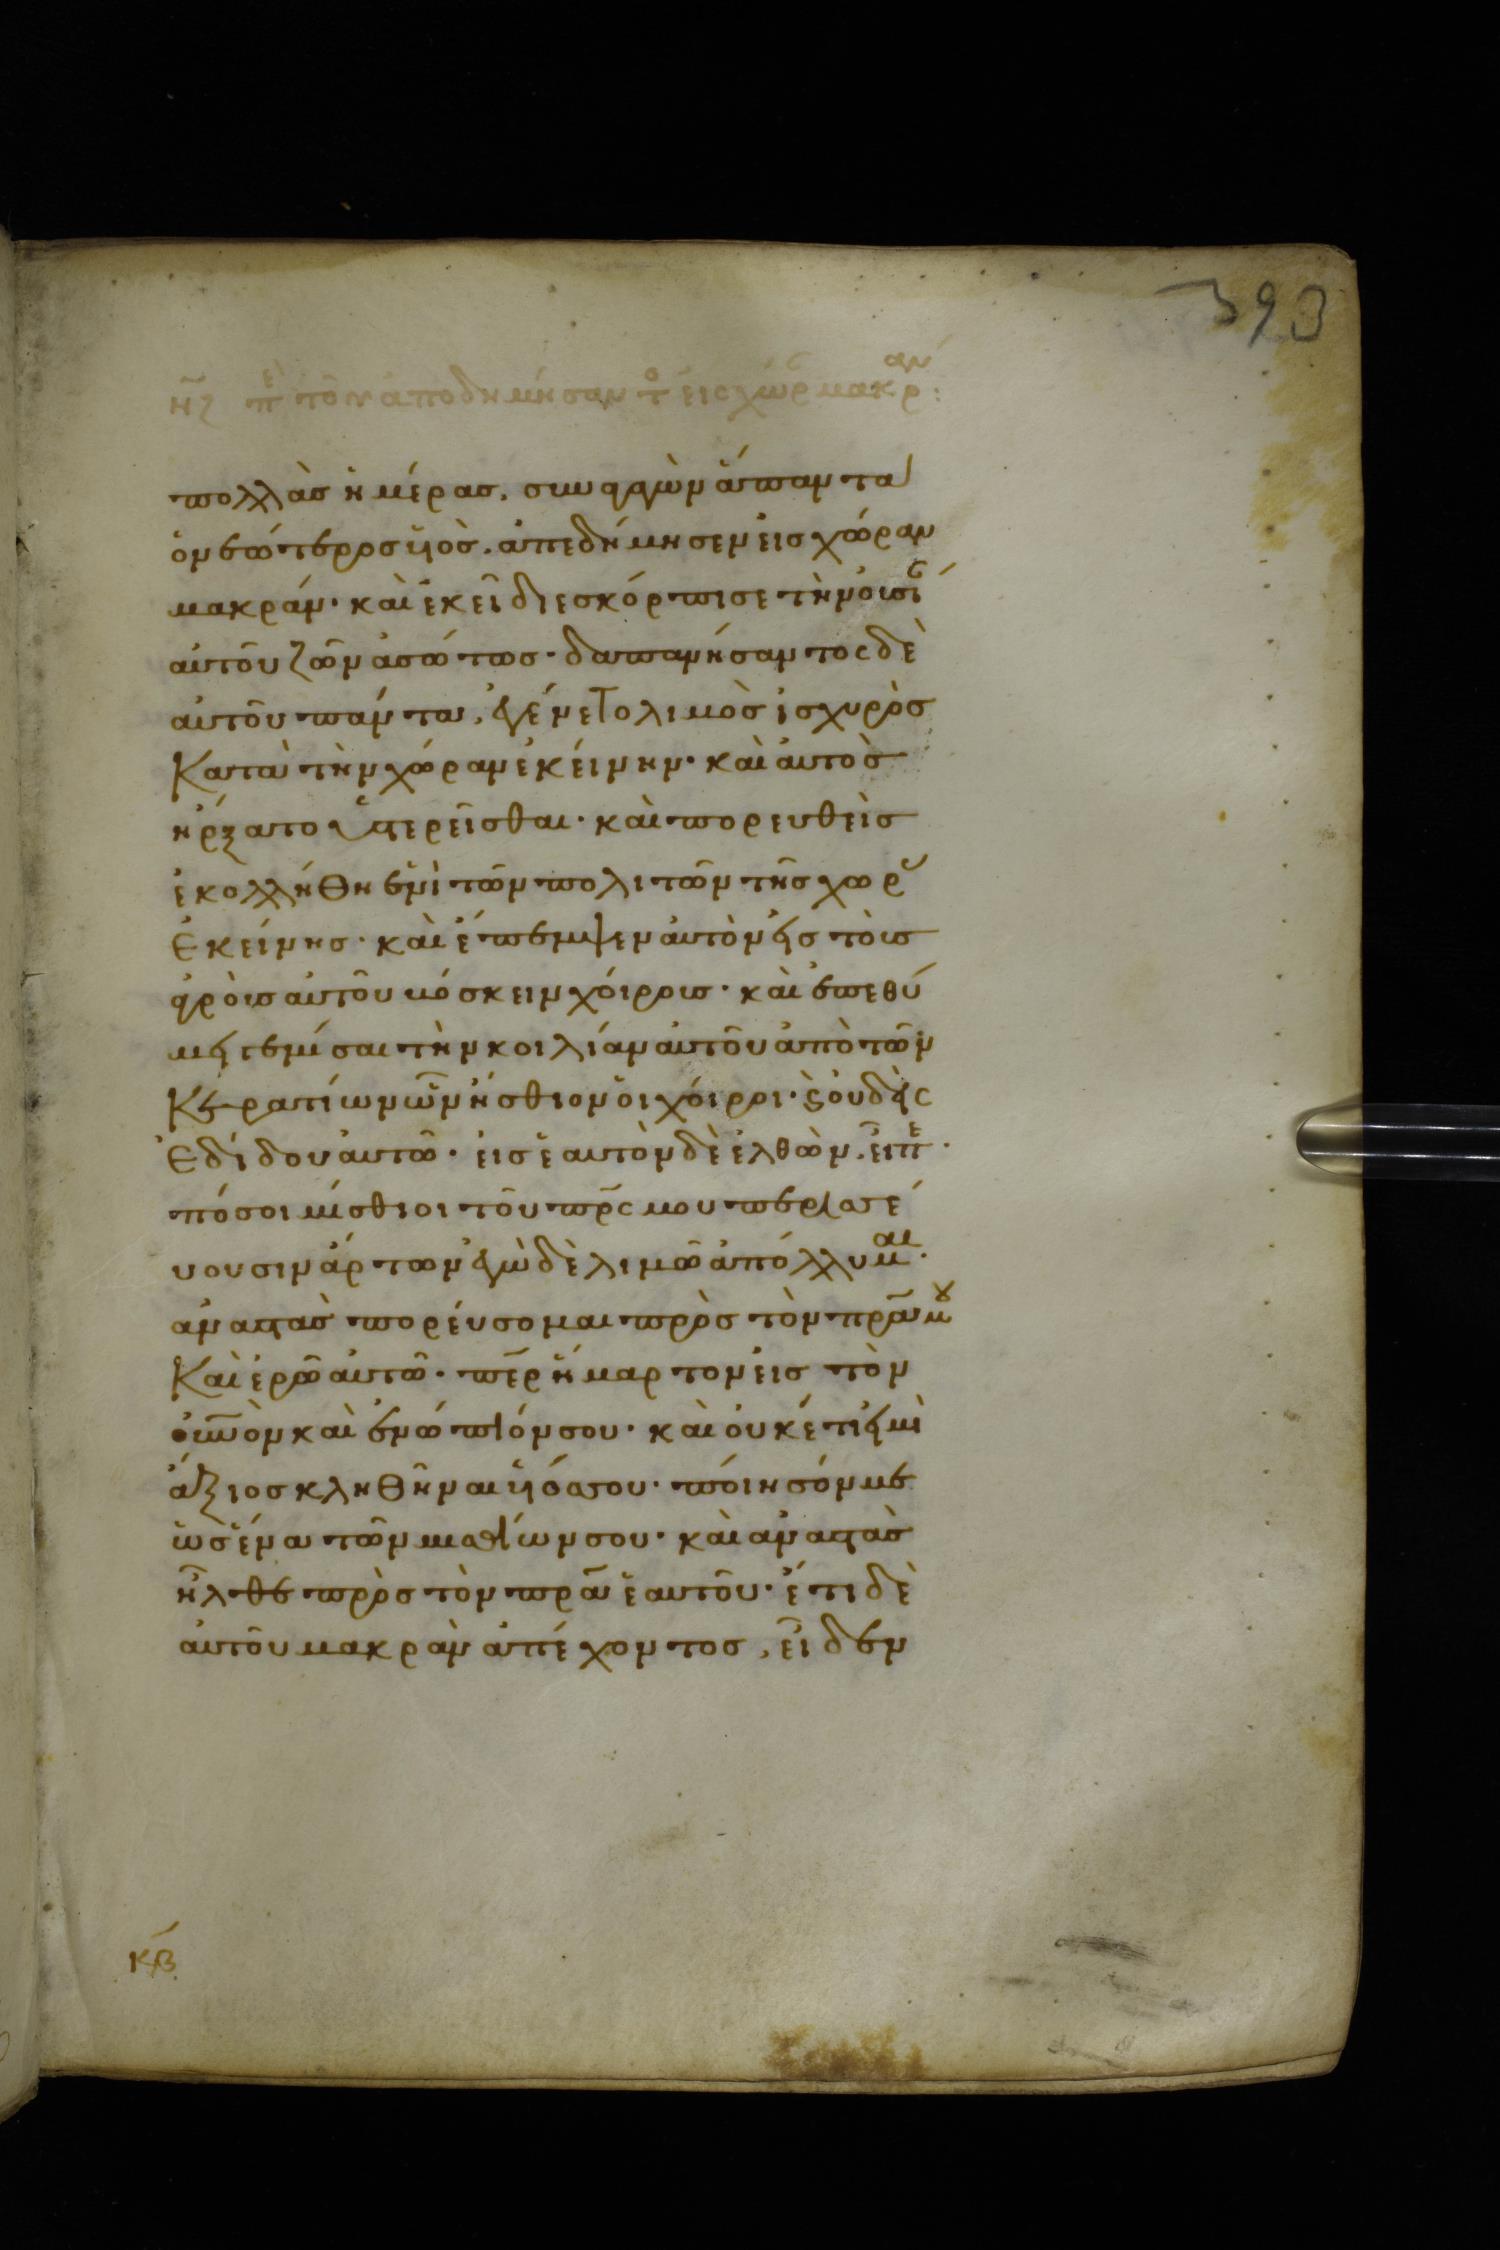 393
νζ πε τοῦ ἀποδημήσαντο εἰς χώρ μακράν:
πολλὰσ ἡμέρασ, συναγαγὼν ἅπαντα
ὁ νεώτεροσ ὑϊὸσ. ἀπεδήμησεν εἰσ χώραν
μακράν· καὶ ἐκεῖ διεσκόρπισε τὴν οὐσί
αὐτοῦ ζῶν ἀσώτωσ· δαπανήσαντοσ δὲ
αὐτοῦ πάντα, ἐγένετο λιμὸσ ἰσχυρὸσ
κατὰ τὴν χώραν ἐκείνην· καὶ αὐτὸσ
ἤρξατο ὑστερεῖσθαι· καὶ πορευθεὶσ
ἐκολλήθη ἑνὶ τῶν πολιτῶν τῆσ χωρ
ἐκείνησ· καὶ ἔπεμψεν αὐτὸν εἰσ τοὺσ
ἀγροὺσ αὐτοῦ βόσκειν χοίρουσ· καὶ ἐπεθύ
μει γεμίσαι τὴν κοιλίαν αὐτοῦ ἀπὸ τῶν
κερατίων ὧν ἤσθιον οἱ χοῖροι· ϗ οὐδεὶσ
ἐδίδου αὐτῶ· εἰσ ἑαυτὸν δὲ ἐλθὼν, εἶπε·
πόσοι μίσθιοι τοῦ πρσ μου περισσεύ
ουσιν ἄρτων, ἐγὼ δὲ λιμῶ ἀπόλλυμαι·
ἀναστὰσ πορεύσομαι πρὸσ τὸν πρα μου
καὶ ἐρῶ αὐτῶ· περ ἥμαρτον εἰσ τὸν
οὐνὸν καὶ ἐνώπιόν σου· καὶ οὐκέτι εἰμὶ
ἄξιοσ κληθῆναι ὑϊόσ σου· ποίησόν με
ὡσ ἕνα τῶν μισθίων σου· καὶ ἀναστὰσ
ἦλθε πρὸσ τὸν πρα ἑαυτοῦ· ἔτι δὲ
αὐτοῦ μακρὰν ἀπέχοντοσ, εἶδεν
κβ